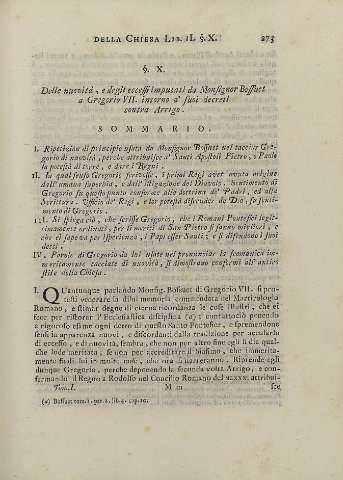 DELLA CHIESA LIB. II. §. X. 273
§. X.
Delle nuovità, e degli eccessi imputati da Monsignor Bossuet
a Gregorio VII. intorno a' suoi decreti
contra Arrigo.
SOMMARIO.
I. Ripetizion di principio usata da Monsignor Bossuet nel tacciar Gre-
gorio di nuovità, perchè attribuisce a' Santi Apostoli Pietro, e Paolo
la potestà di torre, e dare i Regni.
II. In qual senso Gregorio scrivesse, i primi Regi aver avuta origine
dall' umana superbia, e dall' istigazione del Diavolo. Sentimento di
Gregorio su questo punto conforme alla dottrina de' Padri, ed alla
Scrittura. Uffizio de' Regi, e lor potestà discender da Dio, fu senti-
mento di Gregorio.
III. Si spiega, ciò, che scrisse Gregorio, che i Romani Pontefici legit-
timamente ordinati, per li meriti di San Pietro si fanno migliori, e
che ei sapeva per isperienza, i Papi esser Santi; e si difendono i suoi
detti.
IV. Parole di Gregorio da lui usate nel pronunziar la scomunica im-
meritamente tacciate di nuovità, si dimostrano conformi all' antico
stile della Chiesa.
I. QUantunque parlando Monsig. Bossuet di Gregorio VII. si pro-
testi venerare la di lui memoria commendata nel Martirologio
Romano, e stimar degne di eterna ricordanza le cose illustri, che ei
fece per ristorar l' Ecclesiastica disciplina (a) è contuttociò pensando
a riguardo esame ogni detto di questo Santo Pontefice, e spremendone
sensi in apparenza nuovi, e discordanti dalla tradizione per accusarlo
di eccesso, e di nuovità, sembra, che non per altro fine egli li dia qual-
che lode meritata, se non per accreditare il biasimo, che immerita-
mente li dà in molte cose, che ora disamineremo. Riprende egli
dunque Gregorio, perchè deponendo la seconda volta Arrigo, e con-
fermando il Regno a Rodolfo nel Concilio Romano del MLXXX. attribui-
Tom. I. M m sce
(a) Bossuet tom. 1. par. 1. lib. 1. cap. 10.